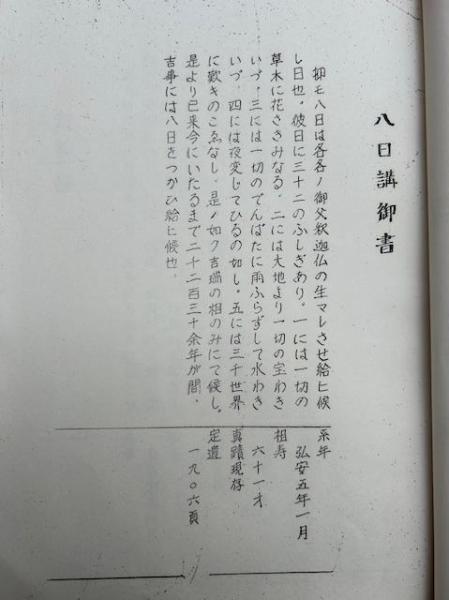 八日講御書
抑モ八日は各各ノ御父釈迦仏の生マレさせ給ヒ候
し日也。彼日に三十二のふしぎあり。一には一切の
草木に花さきみなる。二には大地より一切の宝わき
いづ。三には一切のでんばたに雨ふらずして水わき
いづ。四には夜変じてひるの如し。五には三千世界
に歎きのこゑなし。是ノ如ク吉瑞の相のみにて候し。
是より已来今にいたるまで二千二百三十余年が間、
吉事には八日をつかひ給ヒ候也。
系年
弘安五年一月
祖寿
六十一才
真蹟現存
定遺
一九〇六頁